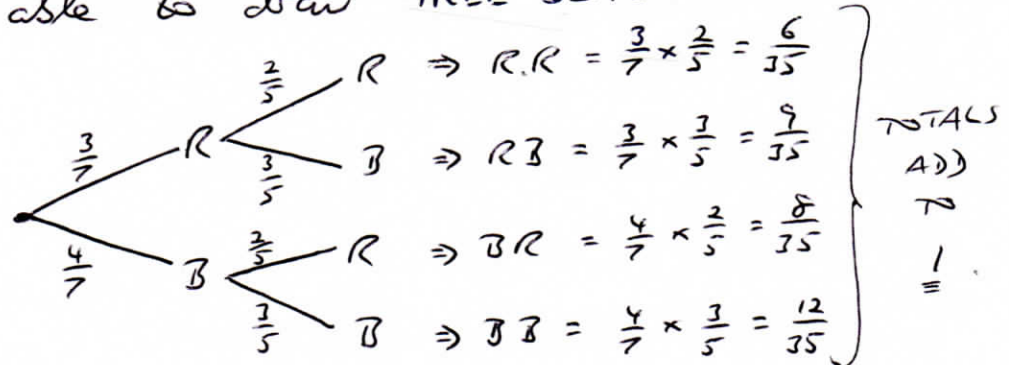 able to draw TREE
2/5 R ⇒ R.R = 3/7 × 2/5 = 6/35
3/7 R
3/5 B ⇒ RB = 3/7 × 3/5 = 9/35
4/7 B
2/5 R ⇒ BR = 4/7 × 2/5 = 8/35
3/5 B ⇒ BB = 4/7 × 3/5 = 12/35
TOTALS
ADD
TO
1